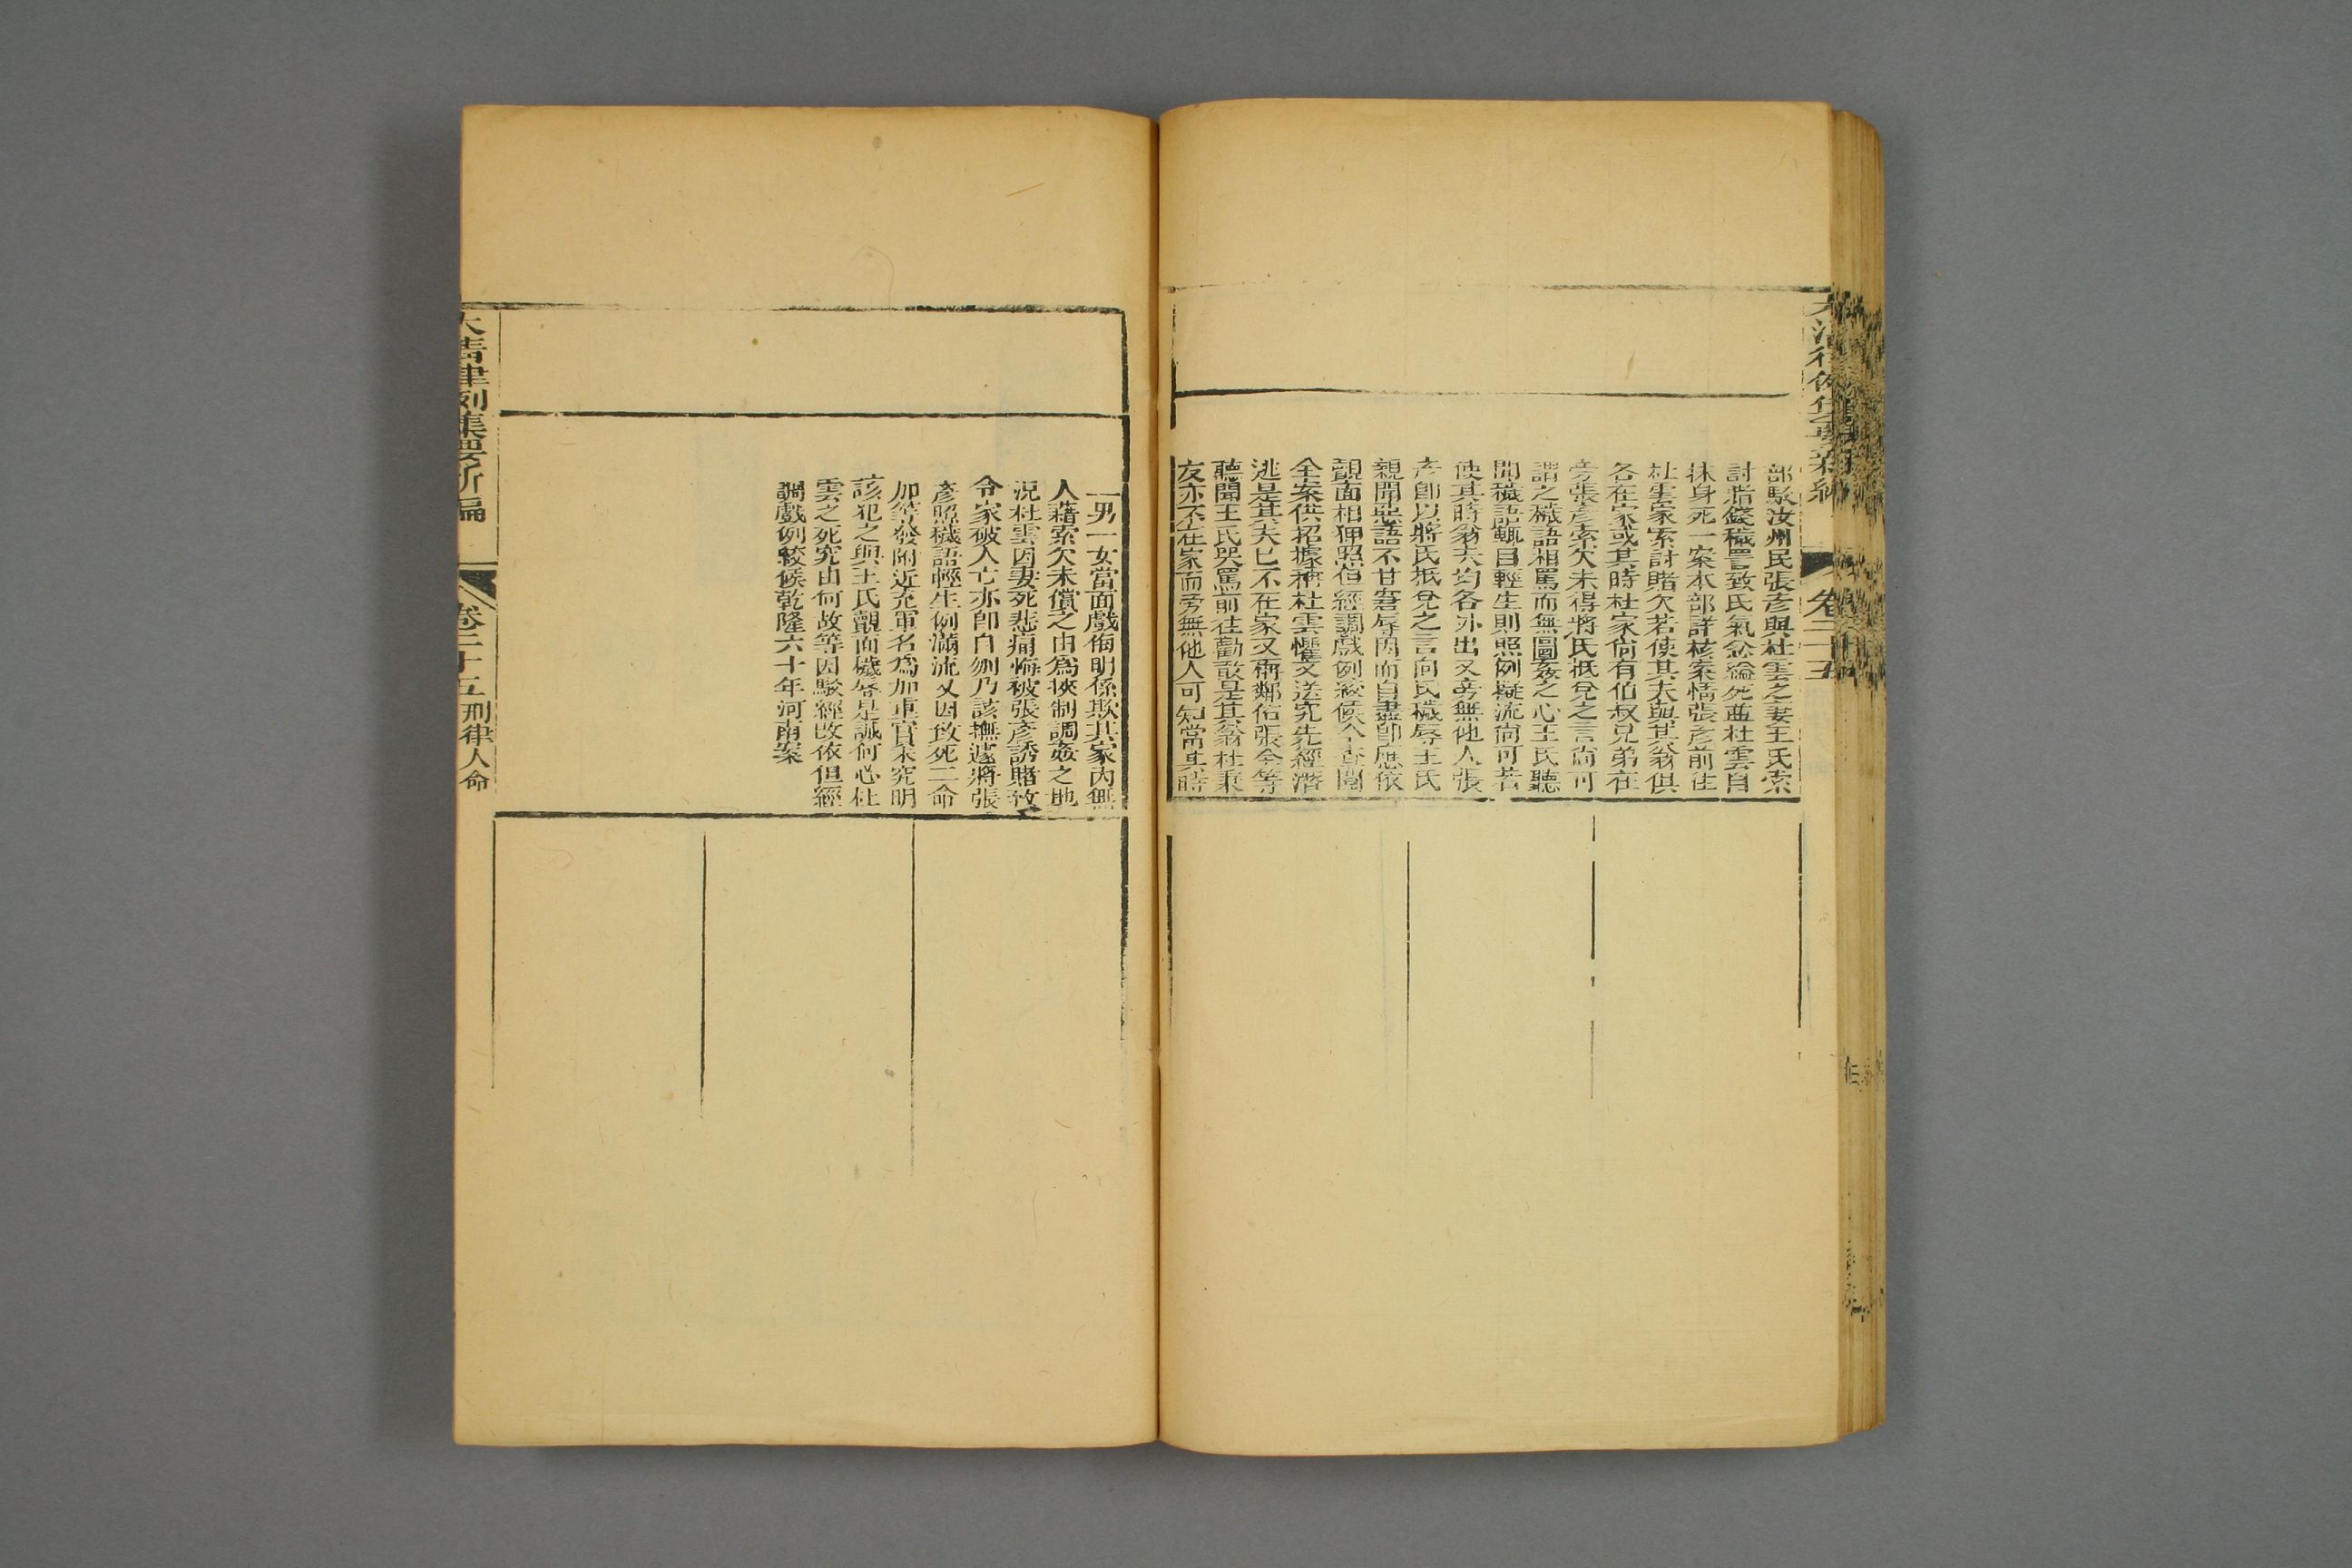 部駁汝州民張彥與杜雲之妻王氏索
討賭錢穢詈致氏氣忿縊死並杜雲自
抹身死一案本部詳核案情張彥前往
杜雲家索討賭欠若使其夫與其翁俱
各在家或其時杜家尚有伯叔兄弟在
旁張彥索欠未得將氏抵兌之言尚可
謂之穢語相罵而無圖姦之心王氏聽
聞穢語輒自輕生則照例擬流尚可若
使其時翁夫均各外出又旁無他人張
彥卽以將氏抵兌之言向氏穢辱王氏
親聞惡語不甘窘辱因而自盡卽應依
覿面相狎照但經調戲例絞候今查閱
全案供招據稱杜雲懼交送究先經潛
逃是其夫已不在家又稱鄰佑張全等
聽聞王氏哭罵前往勸散是其翁杜秉
友亦不在家而旁無他人可知當其時
一男一女當面戲侮明係欺其家內無
人藉索欠未償之由爲挾制調姦之地
況杜雲因妻死悲痛悔被張彥誘賭致
令家破人亡亦卽自刎乃該撫遽將張
彥照穢語輕生例滿流又因致死二命
加等發附近充軍名爲加重實未究明
該犯之與王氏覿面穢辱是誠何心杜
雲之死究由何故等因駁經改依但經
調戲例絞候乾隆六十年河南案
大清律例集要新編
卷二十五
刑律人命